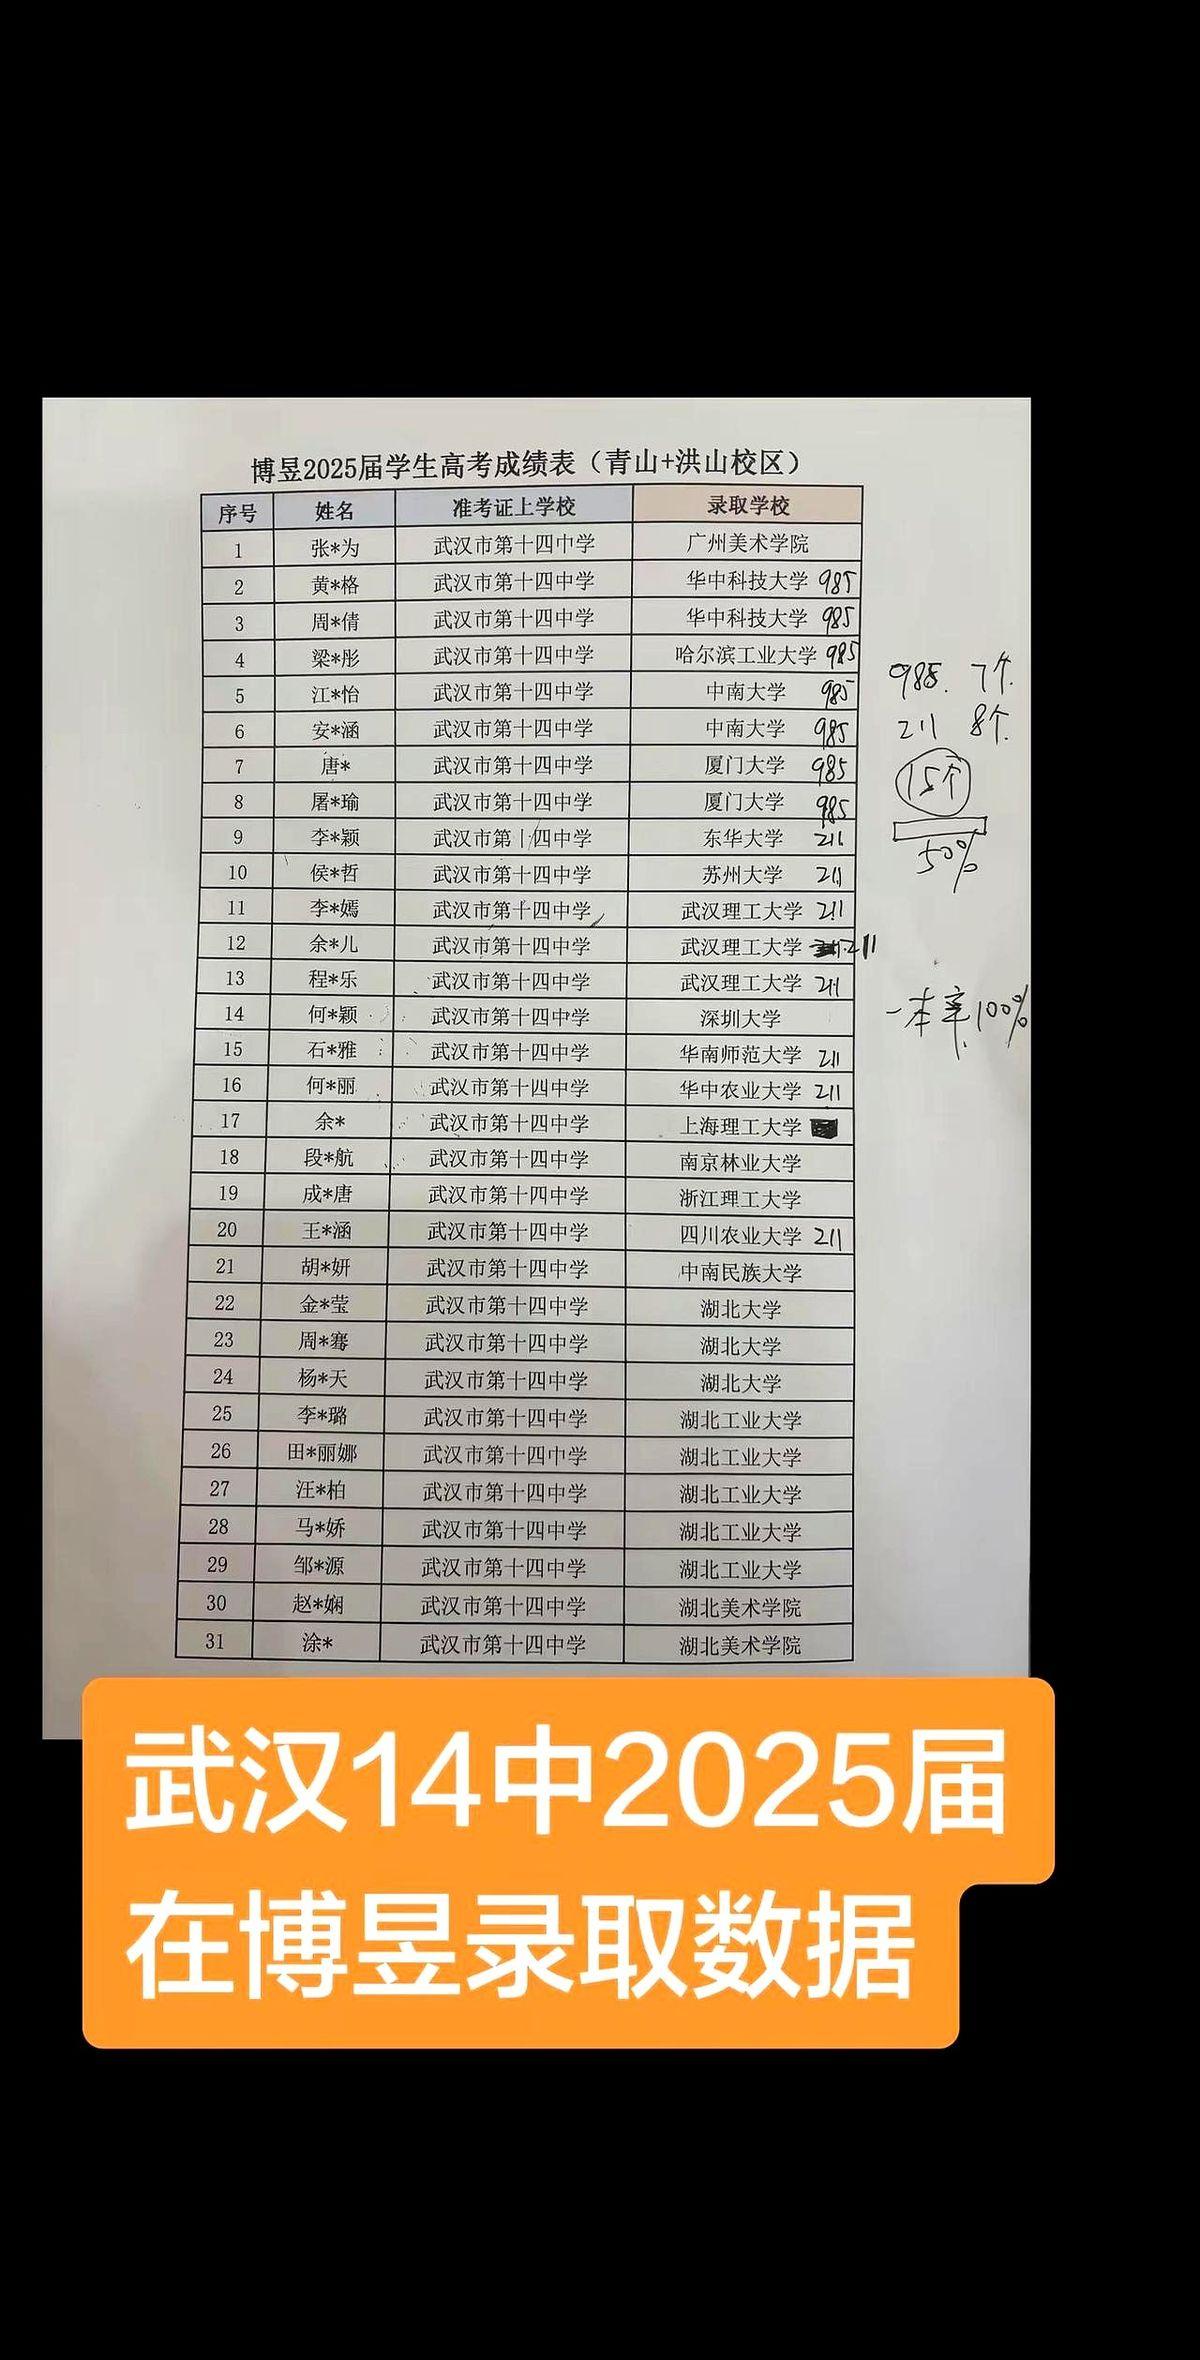 博昱2025届学生高考成绩表（青山+洪山校区）
序号 姓名 准考证上学校 录取学校
1 张*为 武汉市第十四中学 广州美术学院
2 黄*格 武汉市第十四中学 华中科技大学 985
3 周*倩 武汉市第十四中学 华中科技大学 985
4 梁*彤 武汉市第十四中学 哈尔滨工业大学 985
5 江*怡 武汉市第十四中学 中南大学 985
6 安*涵 武汉市第十四中学 中南大学 985
7 唐* 武汉市第十四中学 厦门大学 985
8 屠*瑜 武汉市第十四中学 厦门大学 985
9 李*颖 武汉市第十四中学 东华大学 211
10 侯*哲 武汉市第十四中学 苏州大学 211
11 李*嫣 武汉市第十四中学 武汉理工大学 211
12 余*儿 武汉市第十四中学 武汉理工大学 211
13 程*乐 武汉市第十四中学 武汉理工大学 211
14 何*颖 武汉市第十四中学 深圳大学
15 石*雅 武汉市第十四中学 华南师范大学 211
16 何*丽 武汉市第十四中学 华中农业大学 211
17 余* 武汉市第十四中学 上海理工大学
18 段*航 武汉市第十四中学 南京林业大学
19 成*唐 武汉市第十四中学 浙江理工大学
20 王*涵 武汉市第十四中学 四川农业大学 211
21 胡*妍 武汉市第十四中学 中南民族大学
22 金*莹 武汉市第十四中学 湖北大学
23 周*骞 武汉市第十四中学 湖北大学
24 杨*天 武汉市第十四中学 湖北大学
25 李*璐 武汉市第十四中学 湖北工业大学
26 田*丽娜 武汉市第十四中学 湖北工业大学
27 汪*柏 武汉市第十四中学 湖北工业大学
28 马*娇 武汉市第十四中学 湖北工业大学
29 邹*源 武汉市第十四中学 湖北工业大学
30 赵*娴 武汉市第十四中学 湖北美术学院
31 涂* 武汉市第十四中学 湖北美术学院
985. 7个.
211 8个.
15个
50%
一本率100%
武汉14中2025届
在博昱录取数据